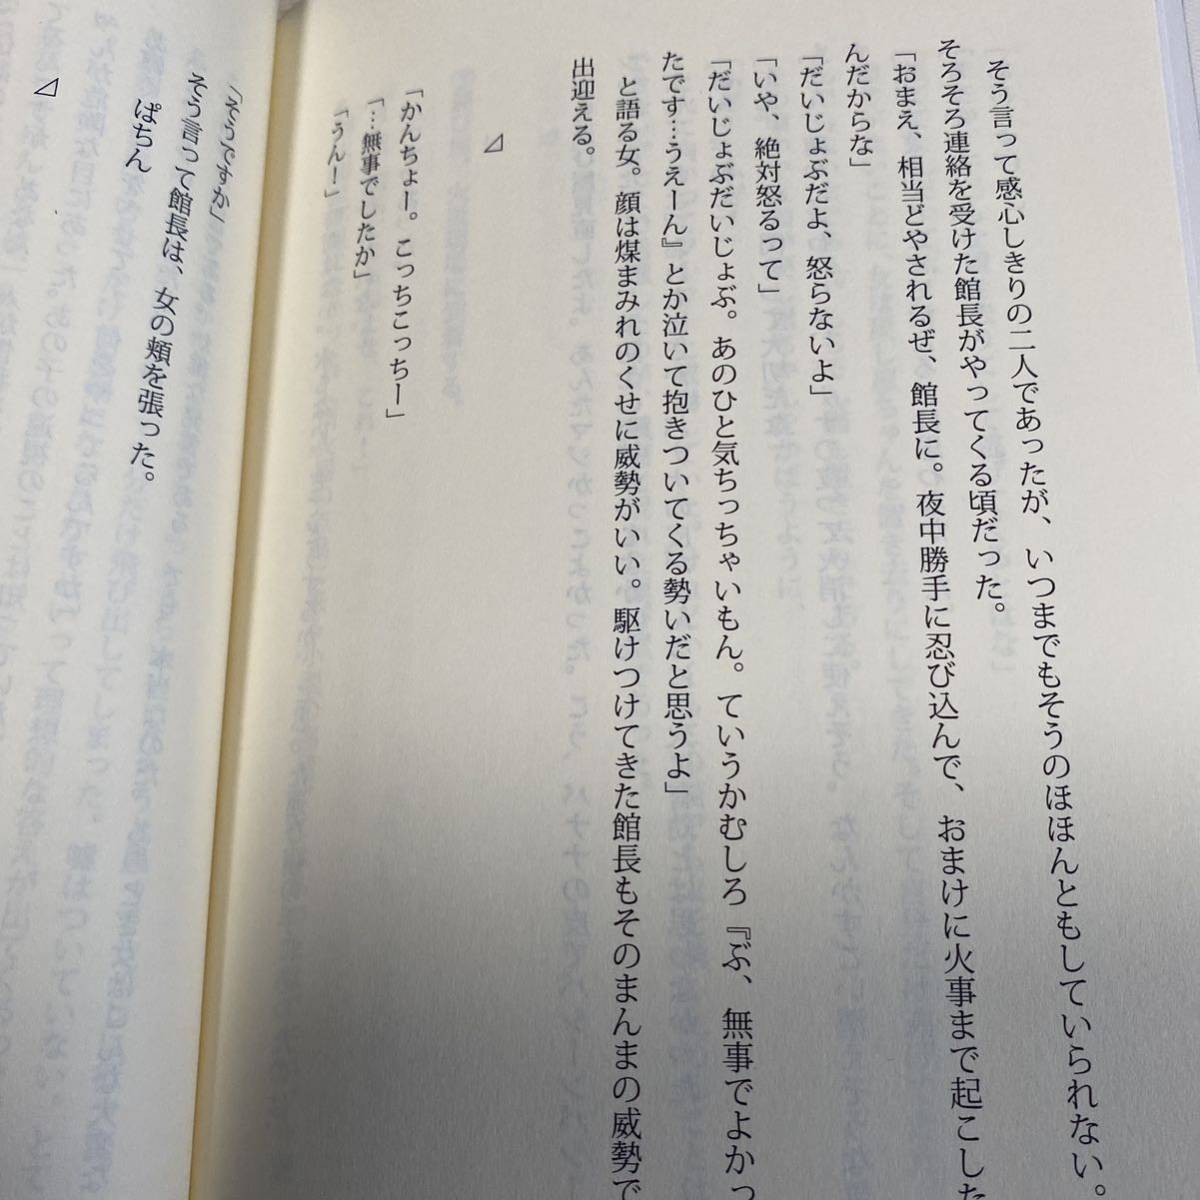 そう言って感心しきりの二人であったが、いつまでもそうのほほんともしていられない。
そろそろ連絡を受けた館長がやってくる頃だった。
「おまえ、相当どやされるぜ、館長に。夜中勝手に忍び込んで、おまけに火事まで起こした
んだからな」
「だいじょぶだよ、怒らないよ」
「いや、絶対怒るって」
「だいじょぶだいじょぶ。あのひと気ちっちゃいもん。ていうかむしろ『ぶ、無事でよかっ
たです…うえーん』とか泣いて抱きついてくる勢いだと思うよ」
と語る女。顔は煤まみれのくせに威勢がいい。駆けつけてきた館長もそのまんまの威勢で
出迎える。
⊿
「かんちょー。こっちこっちー」
「…無事でしたか」
「うん！」
「そうですか」
そう言って館長は、女の頬を張った。
ぱちん
⊿